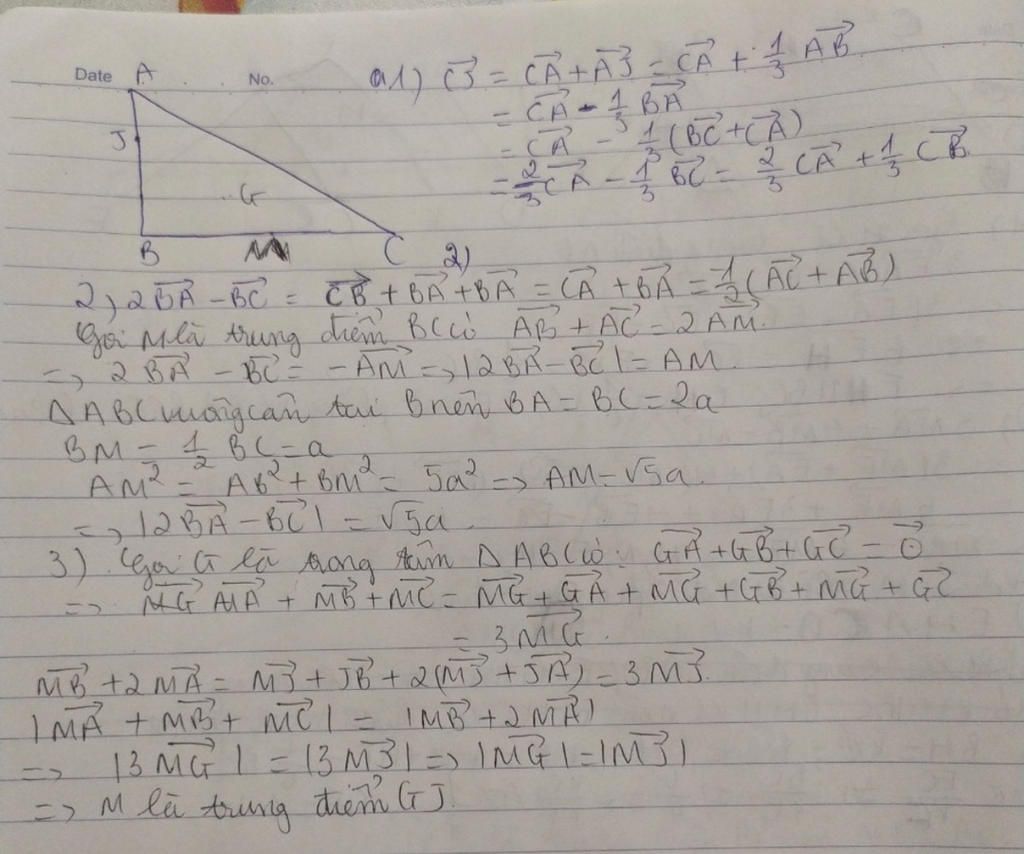 Date A No. a1) CJ⃗ = CA⃗ + AJ⃗ = CA⃗ + 1/3 AB⃗
= CA⃗ - 1/3 BA⃗
J = CA⃗ - 1/3 (BC⃗ + CA⃗)
= 2/3 CA⃗ - 1/3 BC⃗ = 2/3 CA⃗ + 1/3 CB⃗
G
B M C 2)
2) 2BA⃗ - BC⃗ = CB⃗ + BA⃗ + BA⃗ = CA⃗ + BA⃗ = -1/2 (AC⃗ + AB⃗)
Gọi M là trung điểm BC có AB⃗ + AC⃗ = 2AM⃗.
=> 2BA⃗ - BC⃗ = -AM⃗ => |2BA⃗ - BC⃗| = AM.
ΔABC vuông cân tại B nên BA = BC = 2a
BM = 1/2 BC = a
AM² = AB² + BM² = 5a² => AM = √5a.
=> |2BA⃗ - BC⃗| = √5a.
3) Gọi G là trọng tâm ΔABC có: GA⃗ + GB⃗ + GC⃗ = 0⃗
=> MG⃗ MA⃗ + MB⃗ + MC⃗ = MG⃗ + GA⃗ + MG⃗ + GB⃗ + MG⃗ + GC⃗
= 3MG⃗.
MB⃗ + 2MA⃗ = MJ⃗ + JB⃗ + 2(MJ⃗ + JA⃗) = 3MJ⃗.
|MA⃗ + MB⃗ + MC⃗| = |MB⃗ + 2MA⃗|
=> |3MG⃗| = |3MJ⃗| => |MG⃗| = |MJ⃗|
=> M là trung điểm GJ